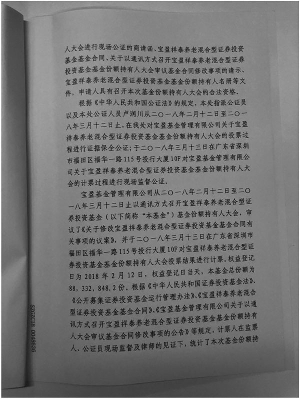 人大会进行现场公证的商请函、宝盈祥泰养老混合型证券投资
基金基金合同、关于以通讯方式召开宝盈祥泰养老混合型证券
投资基金基金份额持有人大会审议基金合同修改事项的请示、
宝盈祥泰养老混合型证券投资基金基金份额持有人名册等文
件。申请人具有召开本次基金份额持有人大会的合法资格。
根据《中华人民共和国公证法》的规定，本处指派公证员
以及本处公证人员卢润川从二〇一八年二月十三日至二〇一
八年三月十二日止，在我处对宝盈基金管理有限公司关于宝盈
祥泰养老混合型证券投资基金基金份额持有人大会的投票过
程进行证据保全公证；于二〇一八年三月十三日在广东省深圳
市福田区福华一路115号投行大厦10F对宝盈基金管理有限公
司关于宝盈祥泰养老混合型证券投资基金基金份额持有人大会
的计票过程进行现场监督公证。
宝盈基金管理有限公司从二〇一八年二月十二日至二〇一
八年三月十二日止以通讯方式召开宝盈祥泰养老混合型证券
投资基金（以下简称“本基金”）基金份额持有人大会，审
议了《关于修改宝盈祥泰养老混合型证券投资基金基金合同有
关事项的议案》，并于二〇一八年三月十三日在广东省深圳市
福田区福华一路115号投行大厦10F对宝盈祥泰养老混合型证
券投资基金基金份额持有人大会投票结果进行计票，权益登记
日为2018年2月12日，权益登记日当天，本基金总份额为
88,332,848.2份。根据《中华人民共和国证券投资基金法》、
《公开募集证券投资基金运作管理办法》、《宝盈祥泰养老混合
型证券投资基金基金合同》、《宝盈基金管理有限公司关于以通
讯方式召开宝盈祥泰养老混合型证券投资基金基金份额持有
人大会审议基金合同修改事项的公告》等规定，计票人在监票
人、公证员现场监督及律师的见证下，统计了本次基金份额持